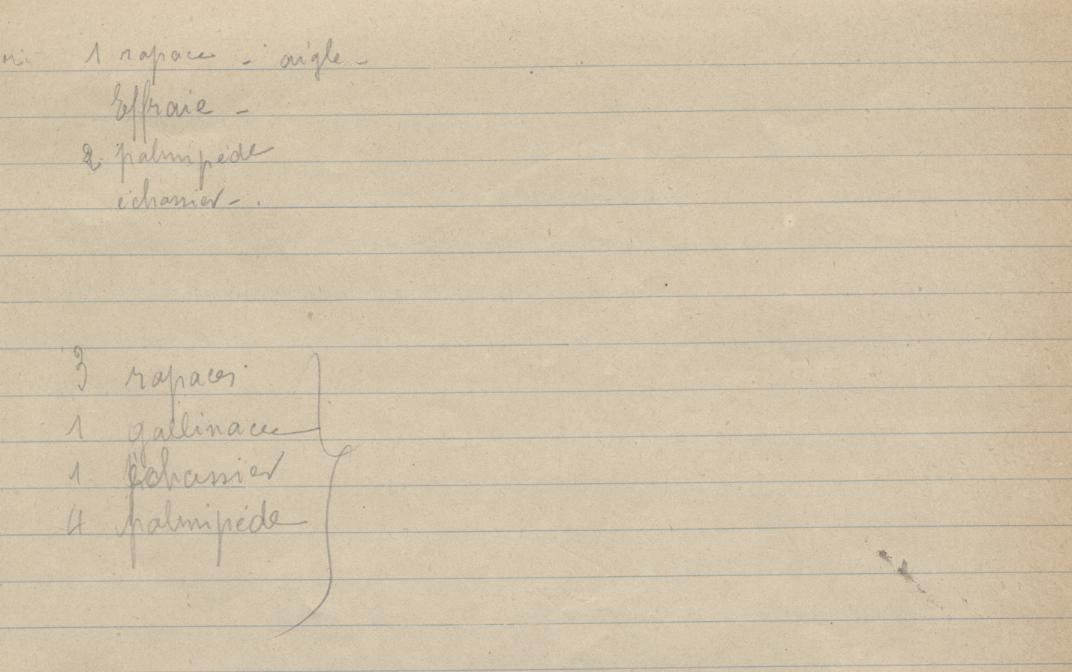 1 rapace - aigle -
Effraie -
2 palmipède
échassier - .
3 rapaces
1 gallinacee
1 échassier
4 palmipède